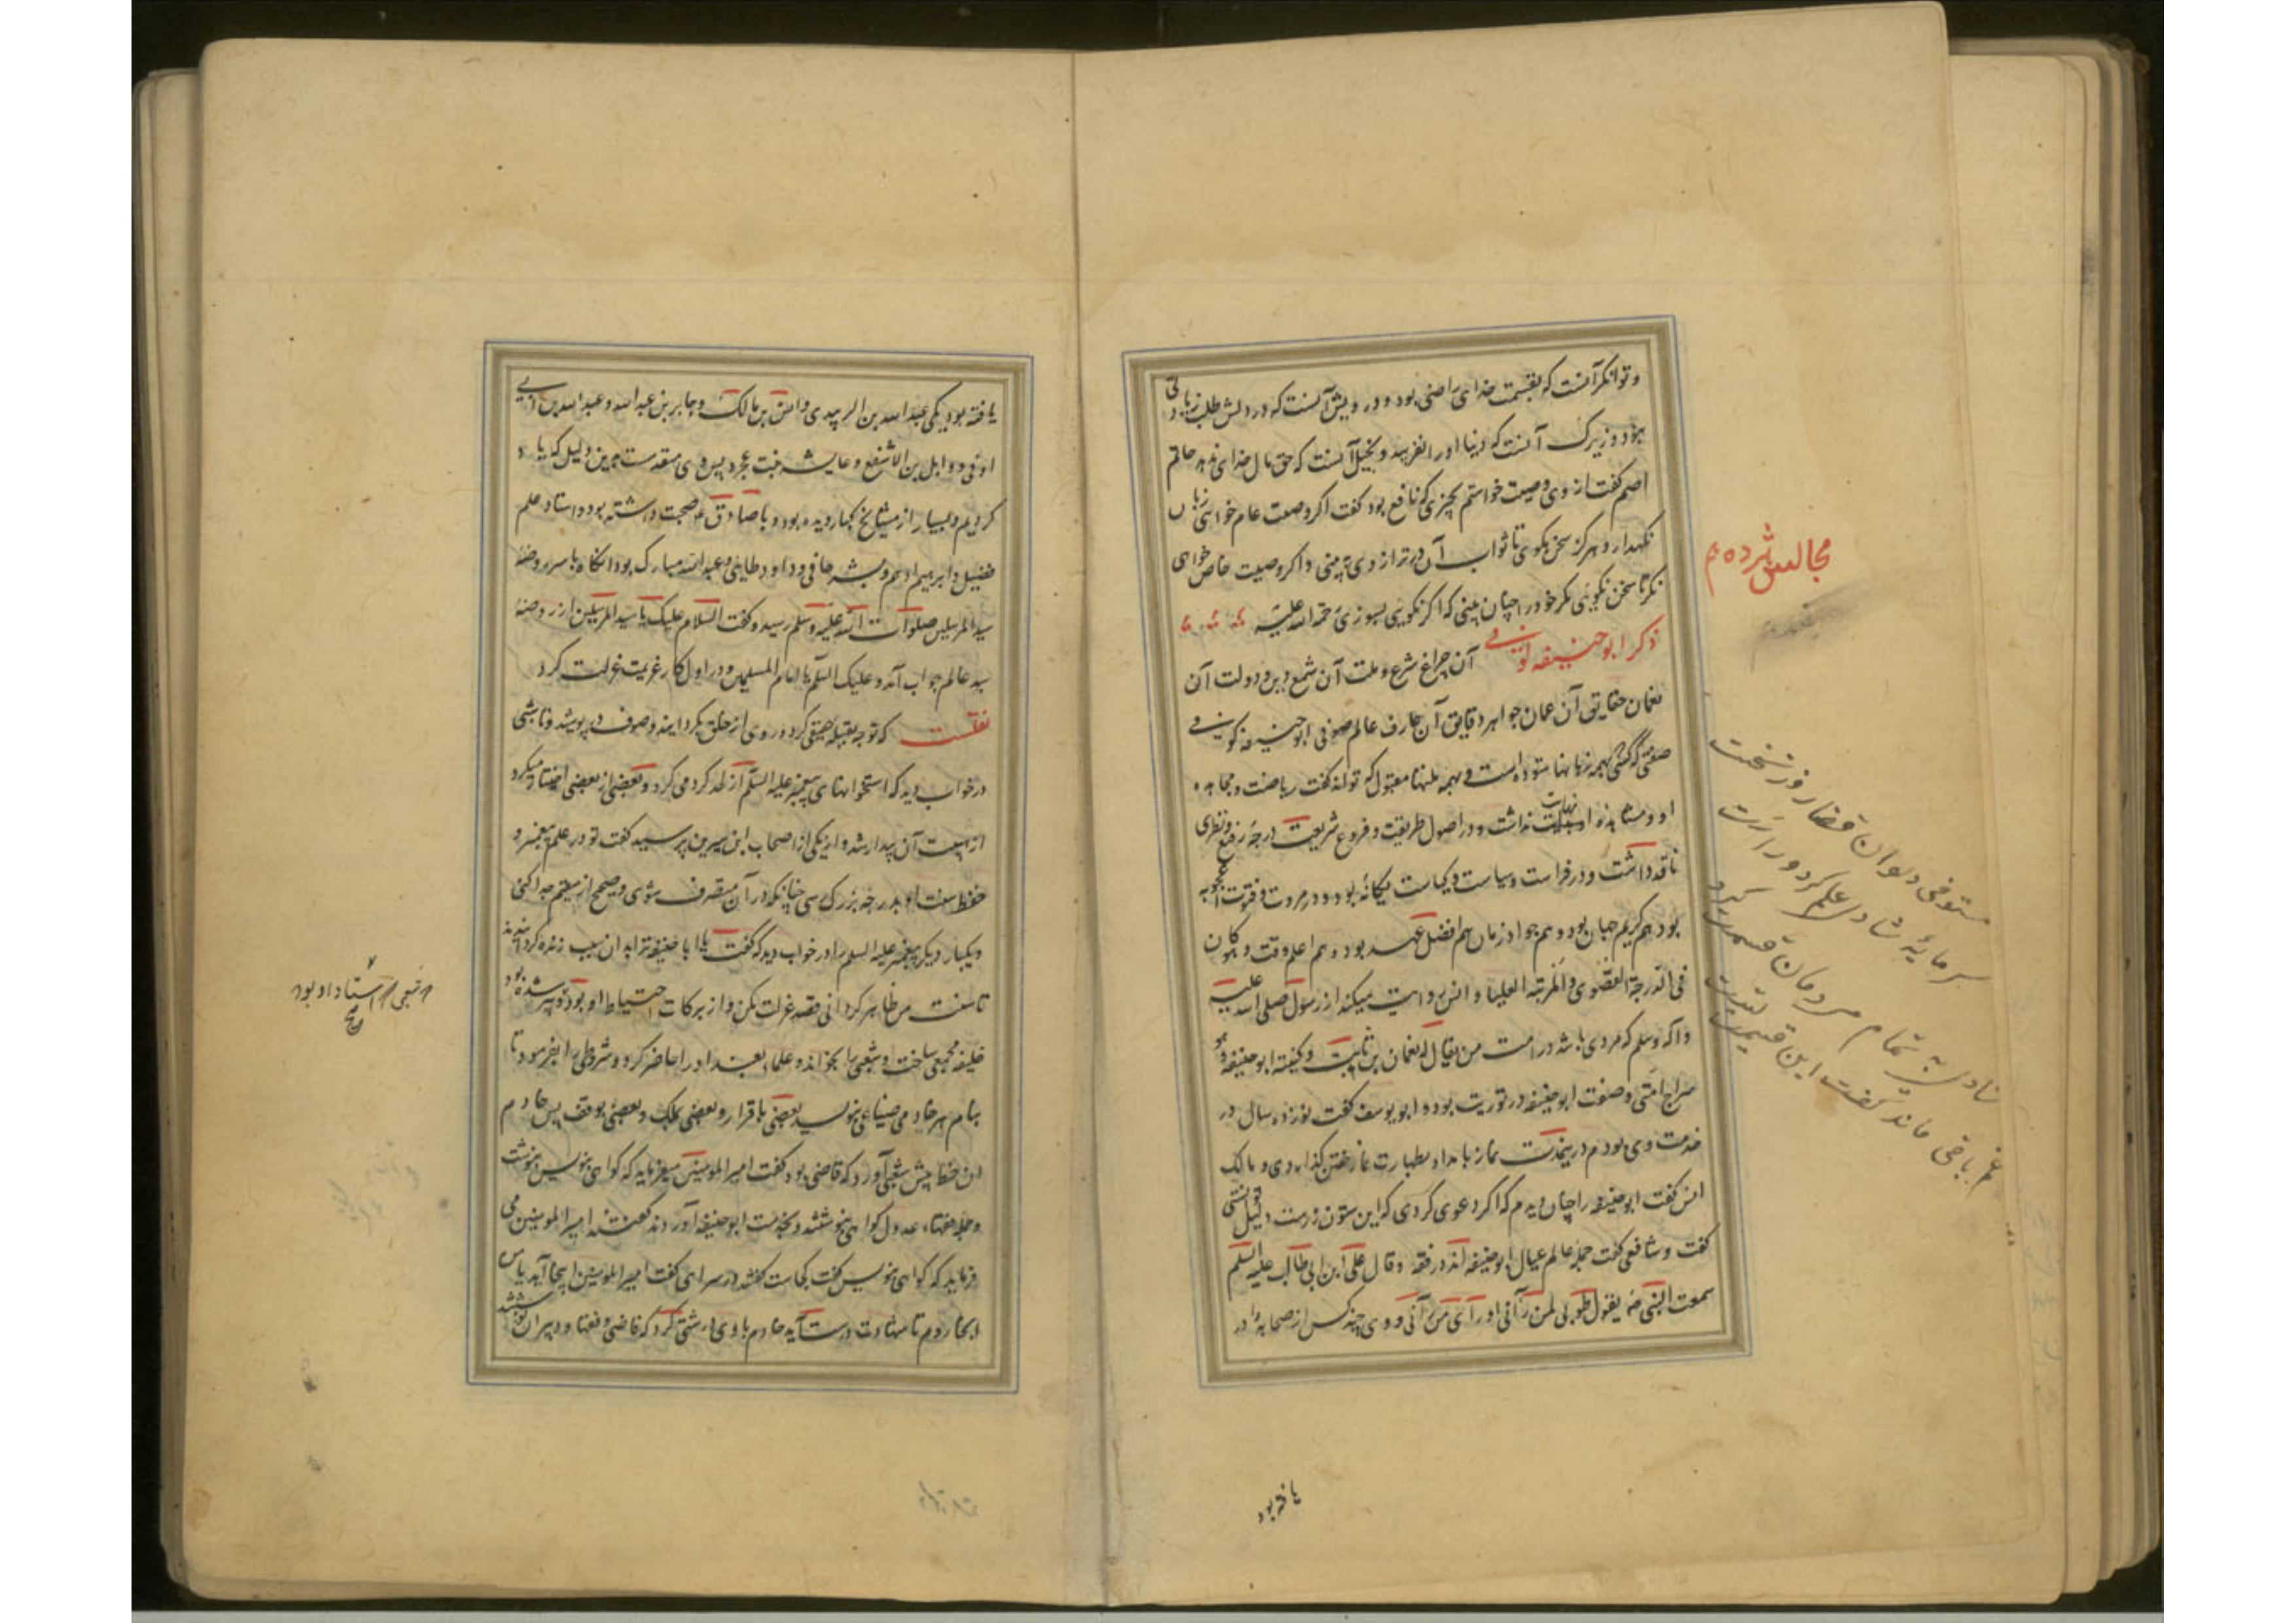 و توانکر آنست که بقسمت خدای راضی بود و درویش آنست که در دلش طلب زیادتی
بود و زیرک آنست که دنیا او را نفریبد و بخیل آنست که حق مال خدای ندهد حاتم
اصم کفت از وی وصیت خواستم بچیزی که نافع بود کفت اکر وصیت عام خواهی زبان
نکهدار و هرکز سخن مکوی تا ثواب آن در ترازوی نه بینی و اکر وصیت خاص خواهی
نکر تا سخن نکویی مکر خود را چنان بینی که اکر نکویی بسوزی رحمة الله علیه
ذکر ابو حنیفه کوفی آن چراغ شرع و ملت آن شمع دین و دولت آن
نعمان حقایق آن عمان جواهر دقایق آن عارف عالم صوفی ابو حنیفه کوفی
صفتی که کسی بهمه زبانها ستوده است و بهمه ملتها مقبول که تواند کفت ریاضت و مجاهده
او و مشاهده او نهایت نداشت و در اصول طریقت و فروع شریعت درجه رفیع و نظری
نافذ داشت و در فراست و سیاست و کیاست یکانه بود و در مروت و فتوت اعجوبه
بود هم کریم جهان بود و هم جواد زمان هم افضل عهد بود و هم اعلم وقت و هو کان
فی الدرجة القصوی و المرتبة العلیا و انس روایت میکند از رسول صلی الله علیه
و آله و سلم که مردی باشد در امت من یقال له نعمان بن ثابت و کنیته ابو حنیفة هو
سراج امتی و صفت ابو حنیفه در توریت بوده ابو یوسف کفت نوزده سال در
خدمت وی بودم درین مدت نماز بامداد بطهارت نماز خفتن کذاردی و مالک
انس کفت ابو حنیفه را چنان دیدم که اکر دعوی کردی که این ستون زرست دلیل توانستی
کفت و شافعی کفت جمله عالم عیال ابو حنیفه اند در فقه و قال علی ابن ابی طالب علیه السلم
سمعت النبی یقول طوبی لمن رآنی او رای من رآنی و وی چند کس از صحابه را در
یافته بود
مجالس
مستوفی دیوان قضا روز نخست
سرمایه شادی و علم کرد درست
شادی به تمام مردمان قسمت کرد
غم باقی ماند کفت این قسمت تست
یافته بود یکی عبد الله بن الزبیدی و انس بن مالک و جابر بن عبد الله و عبد الله بن ابی
اوفی و وایل بن الاشقع و عایشه بنت عجرد پس وی متقدمست برین دلیل که یاد
کردیم و بسیار از مشایخ کبار دیده بود و با صادق صحبت داشته بود و استاد علم
فضیل و ابرهیم ادهم و بشر حافی و داود طایی و عبد الله مبارک بود آنکاه با سر روضه
سید المرسلین صلوات الله علیه و سلم رسید و کفت السلام علیک یا سید المرسلین از روضه
سید عالم جواب آمد و علیک السلم یا امام المسلمین و در اول کار عزیمت عزلت کرد
نقلست که توجه بقبله حقیقی کرد و روی از خلق بکردانید و صوف در پوشید و تا شبی
در خواب دید که استخوانهای پیغمبر علیه السلم از لحد کرد می کرد و بعضی از بعضی اختیار میکرد
از هیبت آن بیدار شد و از یکی از اصحاب ابن سیرین پرسید کفت تو در علم پیغمبر و
حفظ سنت او بدرجه بزرک رسی چنانکه در آن متصرف شوی و صحیح از سقیم جدا کنی
و یکبار دیکر پیغمبر علیه السلم را در خواب دید که کفت یا ابا حنیفه ترا بدان سبب زنده کردانیدند
تا سنت من ظاهر کردانی قصد عزلت مکن و از برکات احتیاط او بود و پیر شده بود
خلیفه مجمعی ساخت و شعبی را بخواند و علماء بغداد را حاضر کرد و شروطی را بفرمود تا
بنام هر خادمی ضیاعی بنویسد بعضی باقرار و بعضی بملک و بعضی بوقف پس خادم
ان خط پیش شعبی آورد که قاضی بود کفت امیر المومنین میفرماید که کواهی بنویس بنوشت
و جمله فقها و عدول کواهی بنوشتند و بخدمت ابو حنیفه آوردند کفتند امیر المومنین می
فرماید که کواهی بنویس کفت کجاست کفتند در سرای کفت امیر المومنین اینجا آید یا من
انجا روم تا شهادت درست آید خادم با وی درشتی کرد که قاضی و فقها و پیران نوشتند
شعبی استاد او بود
صح